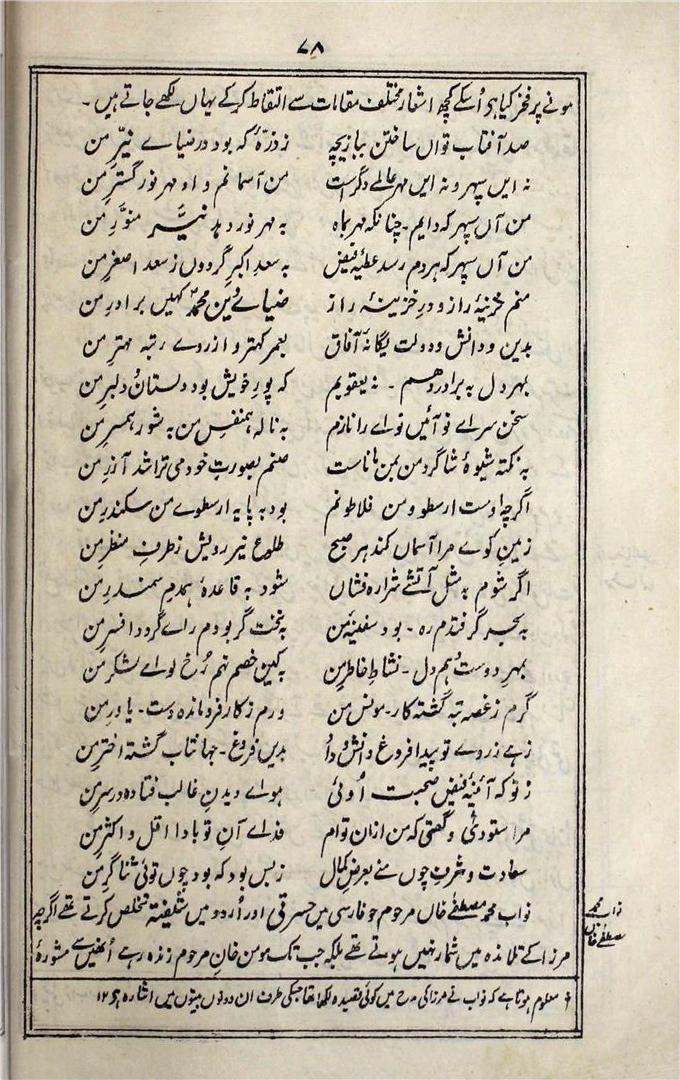 ۷۸
ہونے پر فخر کیا ہی اُسکے کچھ اشعار مختلف مقامات سے التقاط کرکے یہاں لکھے جاتے ہیں۔
صد آفتاب تواں ساختن ببازیچہ زذرّۂ کہ بود در ضیاے نیّرِ من
نہ ایں سپہر و نہ ایں مہر عالمے دگرست من آسمانم و او مہر نور گسترِ من
من آں سپہر کہ دایم۔ چنانکہ مہر بماہ بہ مہر نور دہد نیّرِ منوَّرِ من
من آں سپہر کہ ہر دم رسد عطیۂ فیض بہ سعدِ اکبرِ گردوں ز سعد اصغرِ من
منم خزینۂ راز و درِ خزینۂ راز ضیاے دینِ محمدؐ کہیں برادرِ من
بدین و دانش و دولت یگانۂ آفاق بعمر کہتر و از روے رتبہ مہترِ من
بہر دل بہ برادر دہم۔ نہ یعقوبم کہ پورِ خویش بود دلستان و دلبرِ من
سخن سراے نو آئیں نواے را نازم بہ نالہ ہمنفسِ من بہ شور ہمسرِ من
بہ نکتہ شیوۂ شاگردِ من بمن ماناست صنم بصورتِ خود می تراشد آزرِ من
اگرچہ اوست ارسطو و من فلاطونم بود بہ پایہ ارسطوے من سکندرِ من
زمینِ کوے مرا آسماں کند ہر صبح طلوعِ نیّر رویش زطرفِ منظرِ من
اگر شوم بہ مثل آتشے شرارہ فشاں شود بہ قاعدۂ ہمدم سمندرِ من
بہ بحر گر فتدم رہ۔ بود سفینۂ من بہ تخت گر بودم راے گردد افسرِ من
بہر دوست دہم دل۔ نشاطِ خاطرِ من بہ کین خصم نہم رُخ لواے لشکرِ من
گرم ز غصہ تبہ گشتہ کار۔ مونسِ من ورم ز کار فرو ماندہ دست۔ یاورِ من
زہے ز روے تو پیدا فروغ دانش و داد بدیں فروغ۔ جہانتاب گشتہ اخترِ من
ز تو کہ آئنۂ فیض صحبت اوئی ہواے دیدنِ غالب فتادہ در سرِ من
مرا ستودئ و گفتی کہ من ازان توام فداے آنِ تو بادا اقل و اکثرِ من
سعادت و شرفِ چوں منے بعرضِ کمال ز بس بود کہ بود چوں توئی ثناگرِ من
نواب محمد مصطفےٰ خاں مرحوم جو فارسی میں حسرتی اور اُردو میں شیفتہ تخلص کرتے تھے اگرچہ
مرزا کے تلامذہ میں شمار نہیں ہوتے تھے بلکہ جب تک مومن خان مرحوم زندہ رہے اُنھیں سے مشورۂ
نواب محمد
مصطفےٰ خاں
معلوم ہوتا ہے کہ نواب نے مرزا کی مدح میں کوئی قصیدہ لکھا تھا جسکی طرف ان دونوں بیتوں میں اشارہ ہی ۱۲